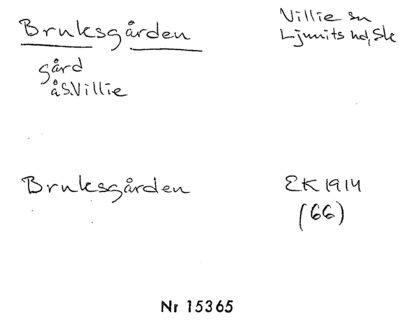 Bruksgården
Villie sn
Ljunits hd, Sk
gård
å S. Villie
Bruksgården
EK 1914
(66)
Nr 15365